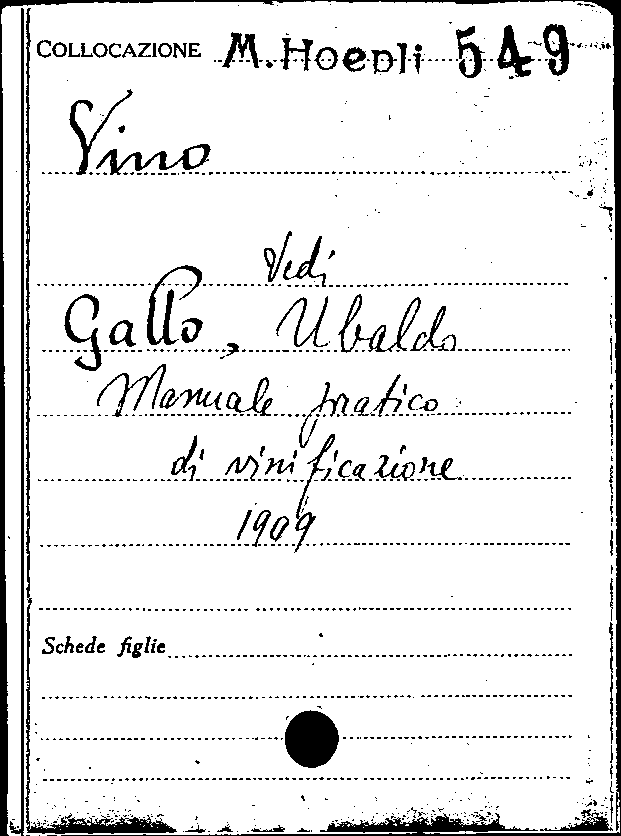 COLLOCAZIONE M. Hoepli 549
Vino
Vedi
Gallo, Ubaldo
Manuale pratico
di vinificazione
1909
Schede figlie